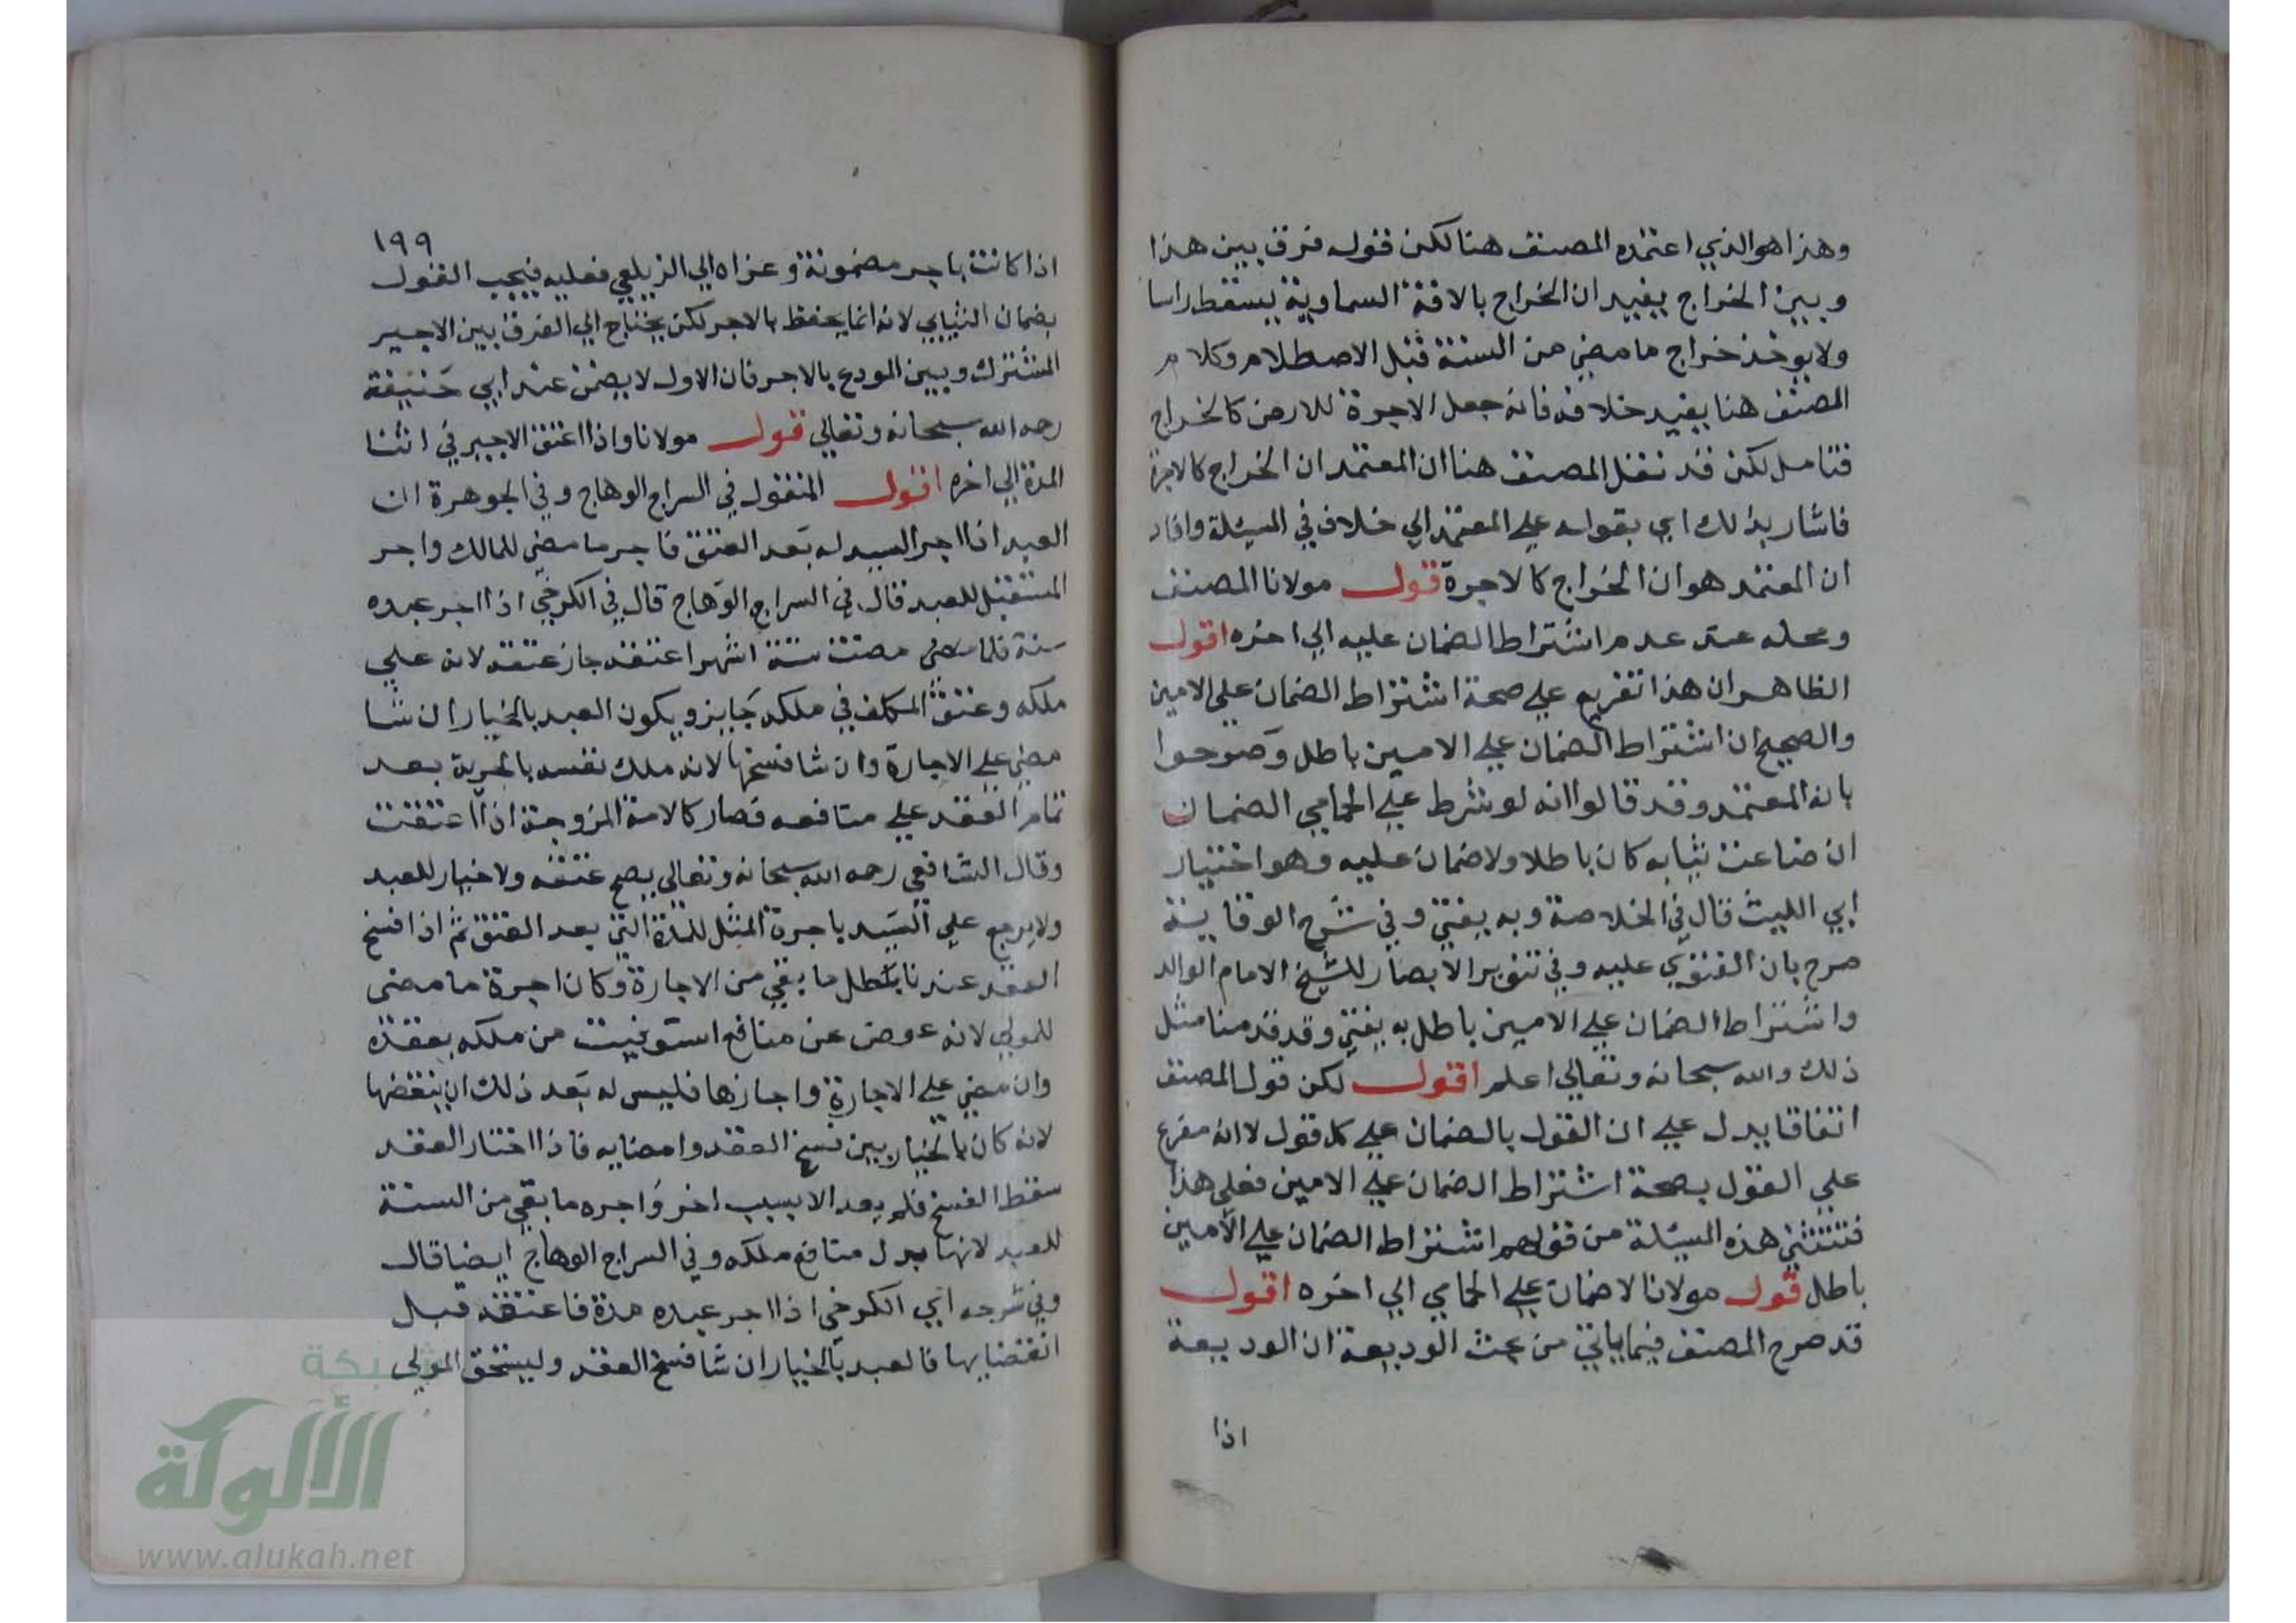 وهذا هو الذي اعتمده المصنف هنا لكن قوله فرق بين هذا
وبين الخراج يفيد ان الخراج بالافة السماوية يسقط راسا
ولا يوخذ خراج ما مضي من السنة قبل الاصطلام وكلام
المصنف هنا يفيد خلافه فانه جعل الاجرة للارض كالخراج
فتامل لكن قد نقل المصنف هنا ان المعتمد ان الخراج كالاجرة
فاشار بذلك اي بقوله علي المعتمد الي خلاف في المسئلة وافاد
ان المعتمد هو ان الخراج كالاجرة قوله مولانا المصنف
ومحله عند عدم اشتراط الضمان عليه الي اخره اقول
الظاهر ان هذا تفريع علي صحة اشتراط الضمان علي الامين
والصحيح ان اشتراط الضمان علي الامين باطل وصرحوا
بانه المعتمد وقد قالوا انه لو شرط علي الحمامي الضمان
ان ضاعت ثيابه كان باطلا ولا ضمان عليه وهو اختيار
ابي الليث قال في الخلاصة وبه يفتي وفي شرح الوقاية
صرح بان الفتوي عليه وفي تنوير الابصار للشيخ الامام الوالد
واشتراط الضمان علي الامين باطل به يفتي وقد قدمنا مثل
ذلك والله سبحانه وتعالي اعلم اقول لكن قول المصنف
اتفاقا يدل علي ان القول بالضمان علي كل قول لا انه مفرع
علي القول بصحة اشتراط الضمان علي الامين فعلي هذا
فتستثني هذه المسئلة من قولهم اشتراط الضمان علي الامين
باطل قوله مولانا لا ضمان علي الحمامي الي اخره اقول
قد صرح المصنف فيما ياتي من بحث الوديعة ان الوديعة
اذا
١٩٩
اذا كانت باجر مضمونة وعزاه الي الزيلعي فعليه فيجب القول
بضمان الثيابي لانه انما يحفظ بالاجر لكن يحتاج الي الفرق بين الاجير
المشترك وبين المودع بالاجر فان الاول لا يضمن عند ابي حنيفة
رحمه الله سبحانه وتعالي قوله مولانا واذا اعتق الاجير في اثنا
المدة الي اخره اقول المنقول في السراج الوهاج وفي الجوهرة ان
العبد اذا اجر السيد له بعد العتق فاجر ما مضي للمالك واجر
المستقبل للعبد قال في السراج الوهاج قال في الكرخي اذا اجر عبده
سنة فلما مضت ستة اشهر اعتقه جاز عتقه لانه علي
ملكه وعتق المكلف في ملكه جايز ويكون العبد بالخيار ان شا
مضي علي الاجارة وان شا فسخها لانه ملك نفسه بالحرية بعد
تمام العقد علي منافعه فصار كالامة المزوجة اذا اعتقت
وقال الشافعي رحمه الله سبحانه وتعالي يصح عتقه ولا خيار للعبد
ولا يرجع علي السيد باجرة المثل للمدة التي بعد العتق ثم اذا فسخ
العقد عندنا بطل ما بقي من الاجارة وكان اجرة ما مضي
للمولي لانه عوض عن منافع استوفيت من ملكه بعقده
وان مضي علي الاجارة واجازها فليس له بعد ذلك ان ينقضها
لانه كان بالخيار بين فسخ العقد وامضايه فاذا اختار العقد
سقط الفسخ فلم يعد الا بسبب اخر واجره ما بقي من السنة
للعبد لانها بدل منافع ملكه وفي السراج الوهاج ايضا قال
وفي شرحه اي الكرخي اذا اجر عبده مدة فاعتقه قبل
انقضايها فالعبد بالخيار ان شا فسخ العقد وليستحق المولي
شبكة
الألوكة
www.alukah.net